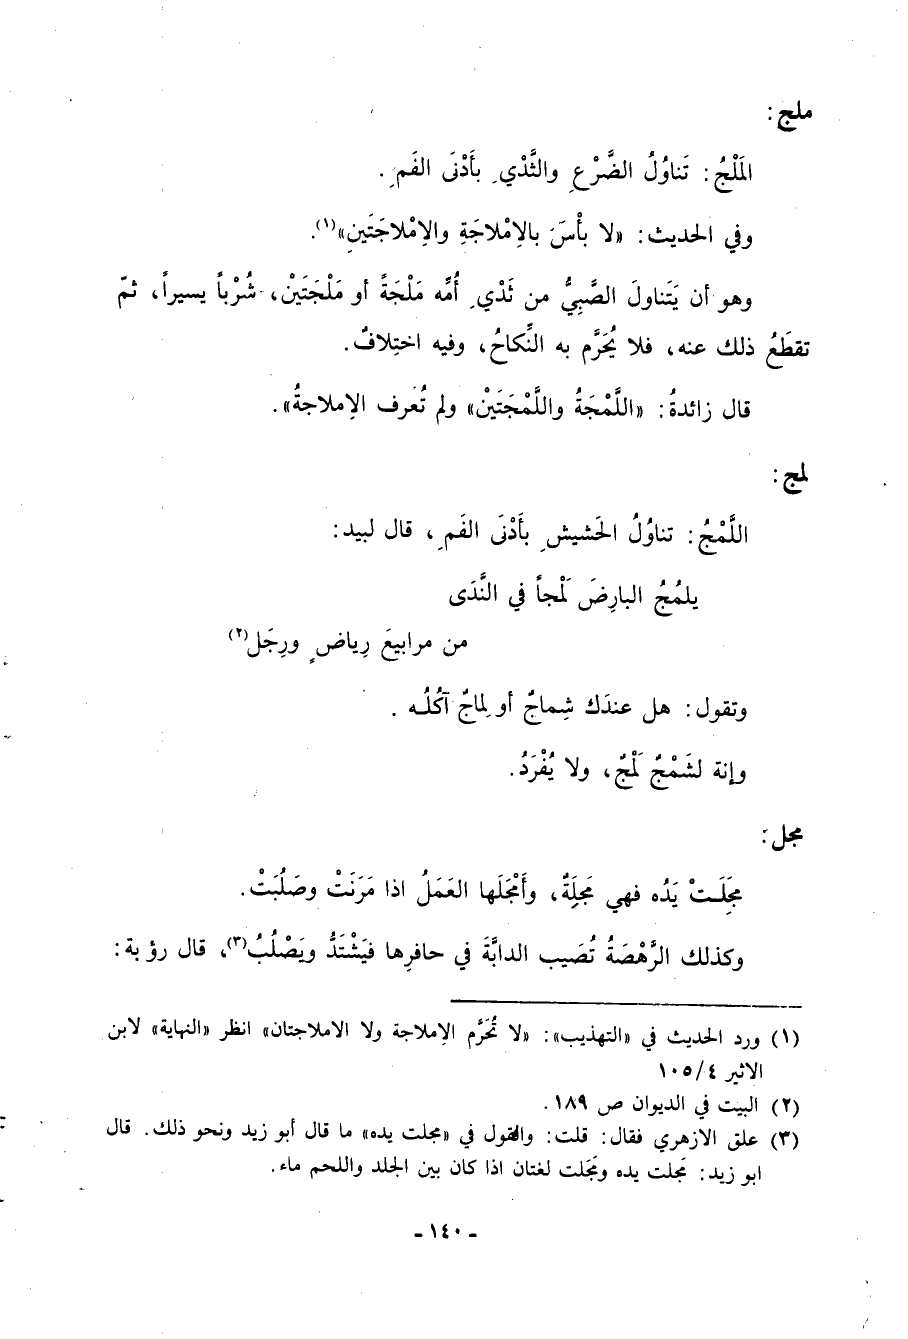 ملج :
المَلْجُ : تَناوُلُ الضَّرْعِ والثَّدْيِ بِأَدْنَى الفَمِ .
وفي الحديث : «لا بأْسَ بالإِمْلاجَةِ والإِمْلاجَتَينِ»(١).
وهو أن يَتَناولَ الصَّبِيُّ من ثَدْيِ أُمِّه مَلْجَةً أو مَلْجَتَيْن، شُرْباً يسيراً، ثمّ
تقطَعُ ذلك عنه، فلا يُحَرَّم به النِّكاحُ، وفيه اختِلافٌ.
قال زائدةُ : «اللَّمْجَةُ واللَّمْجَتَيْن» ولم تُعرف الإِملاجةُ».
لمج :
اللَّمْجُ : تناوُلُ الحَشيشِ بأَدْنَى الفَمِ ، قال لبيد :
يلمُجُ البارِضَ لَمْجاً في النَّدَى
من مرابيعَ رِياضٍ ورِجَل(٢)
وتقول : هل عندَك شِماجٌ أو لِماجٌ آكُلُـه .
وإنة لشَمْجٌ لَمْجٌ، ولا يُفْرَدُ.
مجل :
مجَلَـتْ يَدُه فهي مَجِلَةٌ، وأَمْجَلَها العَمَلُ اذا مَرَنَتْ وصَلُبَتْ.
وكذلك الرَّهْصَةُ تُصَيب الدابَّةَ في حافرِها فيَشْتَدُّ ويَصْلُبُ(٣)، قال رؤبة :
(١) ورد الحديث في «التهذيب» : «لا تُحَرَّم الإملاجة ولا الاملاجتان» انظر «النهاية» لابن
الاثير ٤/١٠٥
(٢) البيت في الديوان ص ١٨٩ .
(٣) علق الازهري فقال : قلت : والقول في «مجلت يده» ما قال أبو زيد ونحو ذلك. قال
ابو زيد : مَجلت يده ومَجَلت لغتان اذا كان بين الجلد واللحم ماء.
- ١٤٠ -